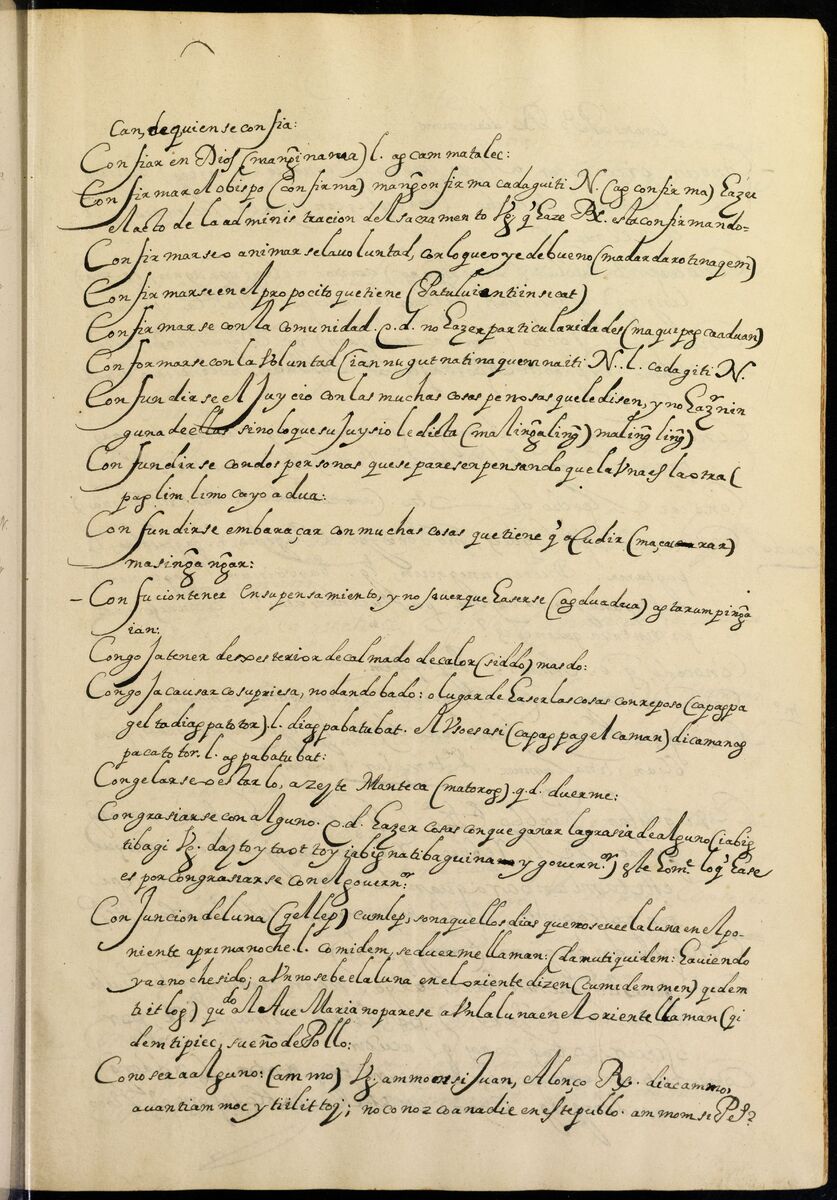 Can, de quien se confia:
Confiar en Dios (manginama) l. ag cammatalec:
Confirmar el obispo (confirma) mangonfirma cadaguiti N. (ag confirma) hazer
el acto de la administracion del sacramento Vg. q.e haze Rx. esta confirmando=
Confirmarse o animarse la voluntad, con lo que oye de bueno (madardarotinagem)
Confirmarse en el propocito que tiene (Patuluientiinsicat)
Confirmarse con la comunidad. q.d. no hazer particularidades (maquipagcaaduan)
Conformarse con la Voluntad (iannugutnatinaquemnaiti N. l. cadagiti N.
Confundirse el Juycio con las muchas cosas penosas que le disen, y no haz.r nin
guna de ellas sino lo que su Juysio le dicta (malingaling) maling ling)
Confundirse con dos personas que se paresen pensando que la Vna es la otra (
paglimlimo cayo a dua:
Confundirse embaraçar con muchas cosas que tiene q.e acudir
masinga ngar:
Confucion tener en su pensamiento, y no saver que haserse (agduadua) agtarumpinga
ian:
Congoja tener de exesterior de calmado de calor (siddo) masdo:
Congoja causar co su priesa, no dando bado: o lugar de haser las cosas con reposo (capagpa
geltadiagpatotor) l. diagpabatubat. el Vso es asi (capagpagelcaman) dicamanag
pacatotor. l. agpabatubat:
Congelarse o estar lo, azeyte Manteca (matorog) q.d. duerme:
Congrasiarse con alguno. q.d. hazer cosas con que ganar la grasia de alguno (iabig
tibagi Vg. daytoy taot toy iabignatibaguina y govern.or) este hom.e lo q.e hase
es por congrasiarse con el govern.or
Conjuncion de luna (gellep) cumlep, son aquellos dias que no se vee la luna en el po-
niente a prima noche. l. comidem, se duerme llaman: (damutiquidem: haviendo
ya anochesido; a Vn no se be e la luna en el oriente dizen (cumidemmen) qidem
tiitlog) qu.do al Ave Maria no parese a Vn la luna en el oriente llaman (qi
demtipiec, sueño de Pollo:
Conoser a alguno: (ammo) Vg. ammom si Juan, Alonço Rx. diacammo,
avantiammoc y tiilittoy; no conozco a nadie en este publo. ammom si P.e S?